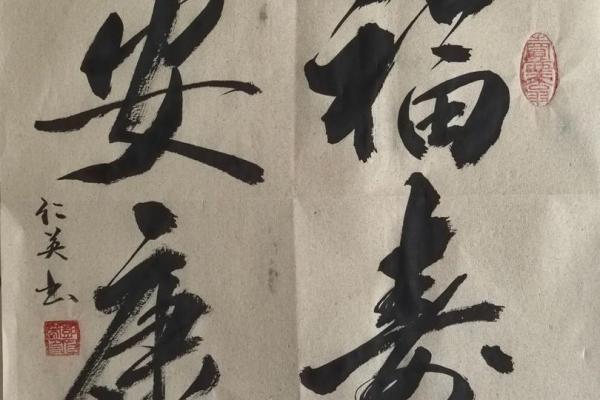 福寿
安康
仁英书